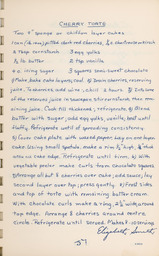 CHERRY TORTE
Two 9" sponge or chiffon layer cakes
1 can (1 lb. 4 oz.) pitted dark red cherries, 1/2 c. Chartreuse or kirsch
2 Tbsp cornstarch 3 egg yolks
3/4 lb. butter 2 tsp vanilla
2 c. icing sugar 3 squares semi-sweet chocolate
Make, bake cake layers, cool. Drain cherries, reserving
juice, to cherries add wine, chill 2 hours.
the reserved juice in saucepan, stir cornstarch, then rem-
aining juice. Cook till thickened, refrigerate. Blend
butter with sugar; add egg yolks, vanilla, beat until
fluffy. Refrigerate until of spreading consistency.
Place cake plate with waxed paper. Lay on one layer
cake. Using small spatula, make a rim 1/2" high, 3/4" thick
around cake edge. Refrigerate until firm. With
vegetable peeler make curls from chocolate squares
Arrange all but 8 cherries over cake, add sauce, lay
second layer over top; press gently. Frost sides
and top of torte with remaining butter cream.
With chocolate curls make a ring, 2 1/2" wide, around
top edge. Arrange 8 cherries around centre
circle. Refrigerate until served. Makes 8 servings.
Elizabeth